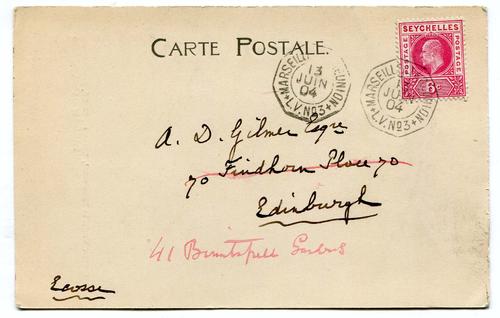 CARTE POSTALE.
SEYCHELLES
POSTAGE POSTAGE
6c
MARSEILLE RÉUNION
13
JUIN
04
L.V. Nº3
MARSEILLE RÉUNION
JUIN
04
L.V. Nº3
A. D. Gilmer Esqre
70 Findhorn Place 70
Edinburgh
41
Ecosse